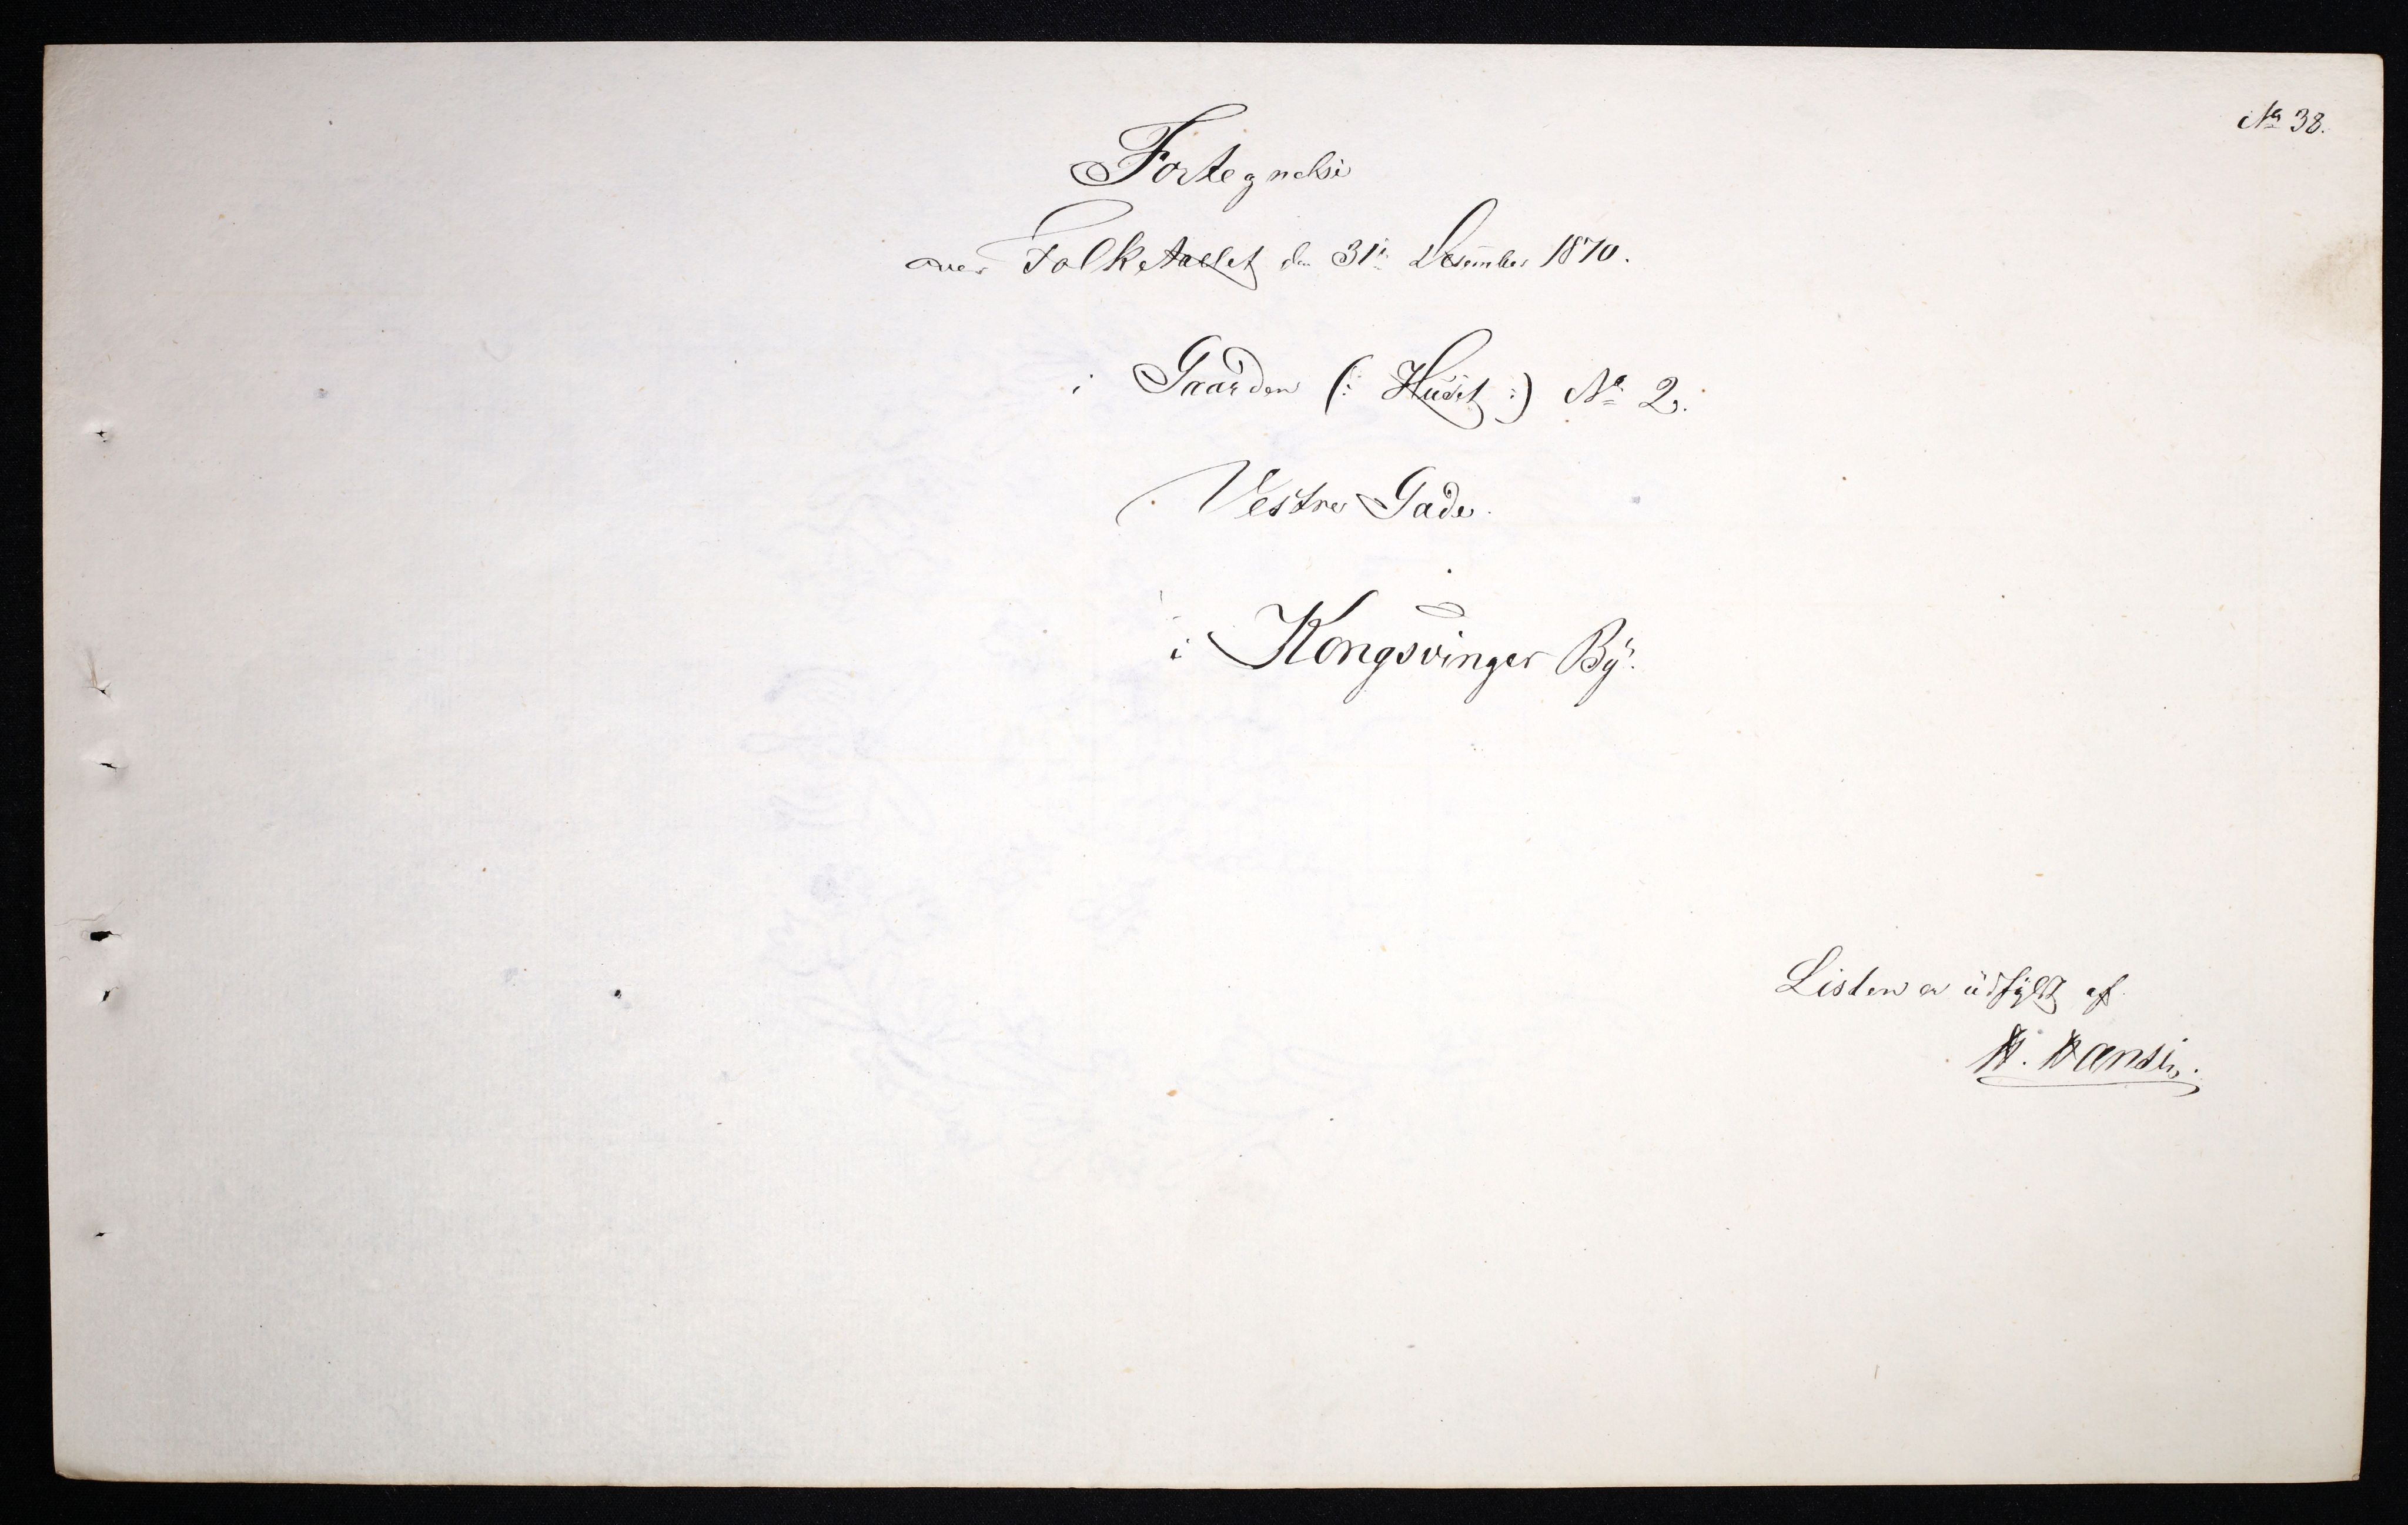 No 38.
Fortegnelse
over Folketallet den 31te Desember 1870.
i Gaarden (: Huset :) No 2.
Vestre Gade.
i Kongsvinger By.
Listen er udfyldt af
H. Hansen.